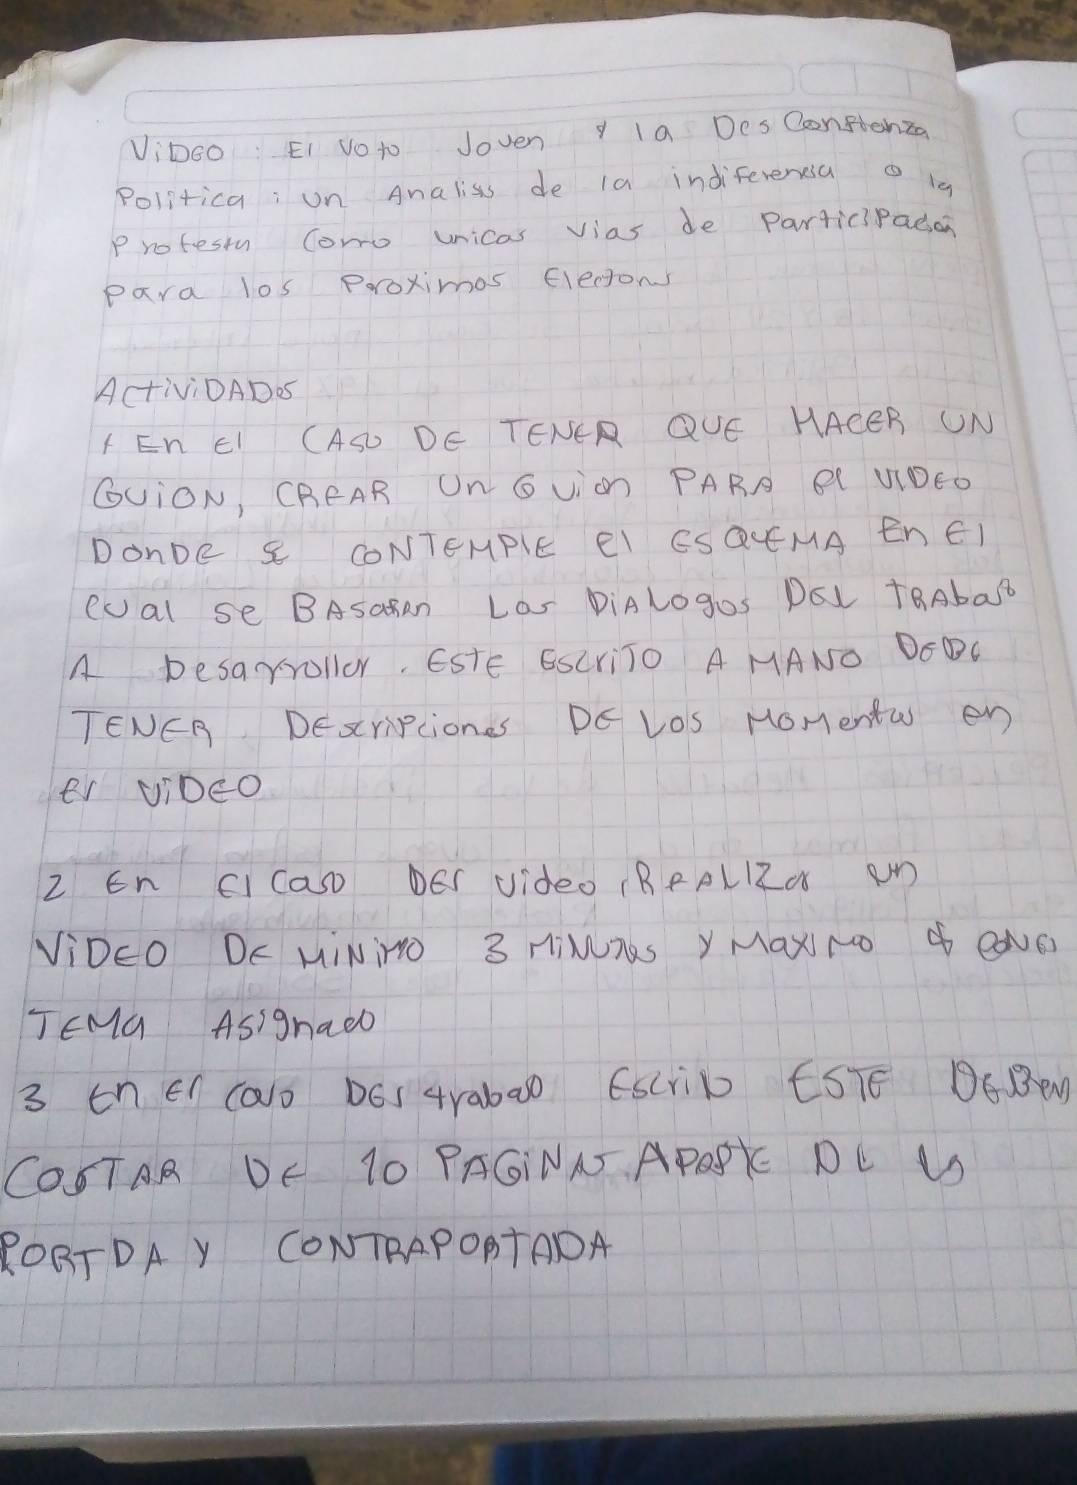 ViDEO : El Voto Joven Y la Des Confianza
Politica : un Analiss de la indiferencia o la
Protesta Como unicas vias de Participacion
para los Proximos Elections
ActiViDADes
1 En El CASO DE TENER QUE HACER UN
GUiON, CREAR Un Guion PARA el ViDEO
DonDe se CONTEMPLE el ESQUEMA En El
cual se BAsaran Los DiALogos DEL TRAbajo
A Desarrollar. ESTE EscriTO A MANO DEBE
TENER DEscripciones DE Los Momentos en
el ViDEO
2 En el Caso DEl video, REALIZar un
ViDEO DE MiNiMO 3 MiNuTos y MaxiMo
TEMa Asignado
3 En El Caso DEl trabajo Escrito ESTE DEBEn
COSTAR DE 10 PAGiNAS APARTE DE la
PORTDA Y CONTRAPORTADA